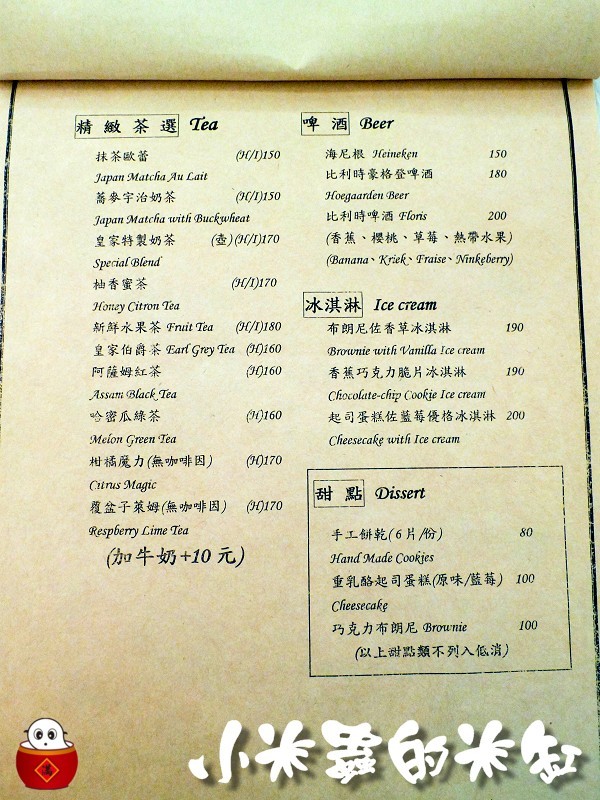 精緻茶選 Tea
抹茶歐蕾 (H/I)150
Japan Matcha Au Lait
蕎麥宇治奶茶 (H/I)150
Japan Matcha with Buckwheat
皇家特製奶茶 (壺)(H/I)170
Special Blend
柚香蜜茶 (H/I)170
Honey Citron Tea
新鮮水果茶 Fruit Tea (H/I)180
皇家伯爵茶 Earl Grey Tea (H)160
阿薩姆紅茶 (H)160
Assam Black Tea
哈密瓜綠茶 (H)160
Melon Green Tea
柑橘魔力(無咖啡因) (H)170
Citrus Magic
覆盆子萊姆(無咖啡因) (H)170
Respberry Lime Tea
(加牛奶+10 元)
啤酒 Beer
海尼根 Heineken 150
比利時豪格登啤酒 180
Hoegaarden Beer
比利時啤酒 Floris 200
(香蕉、櫻桃、草莓、熱帶水果)
(Banana、Kriek、Fraise、Ninkeberry)
冰淇淋 Ice cream
布朗尼佐香草冰淇淋 190
Brownie with Vanilla Ice cream
香蕉巧克力脆片冰淇淋 190
Chocolate-chip Cookie Ice cream
起司蛋糕佐藍莓優格冰淇淋 200
Cheesecake with Ice cream
甜點 Dissert
手工餅乾(6片/份) 80
Hand Made Cookies
重乳酪起司蛋糕(原味/藍莓) 100
Cheesecake
巧克力布朗尼 Brownie 100
(以上甜點類不列入低消)
小米蟲的米缸